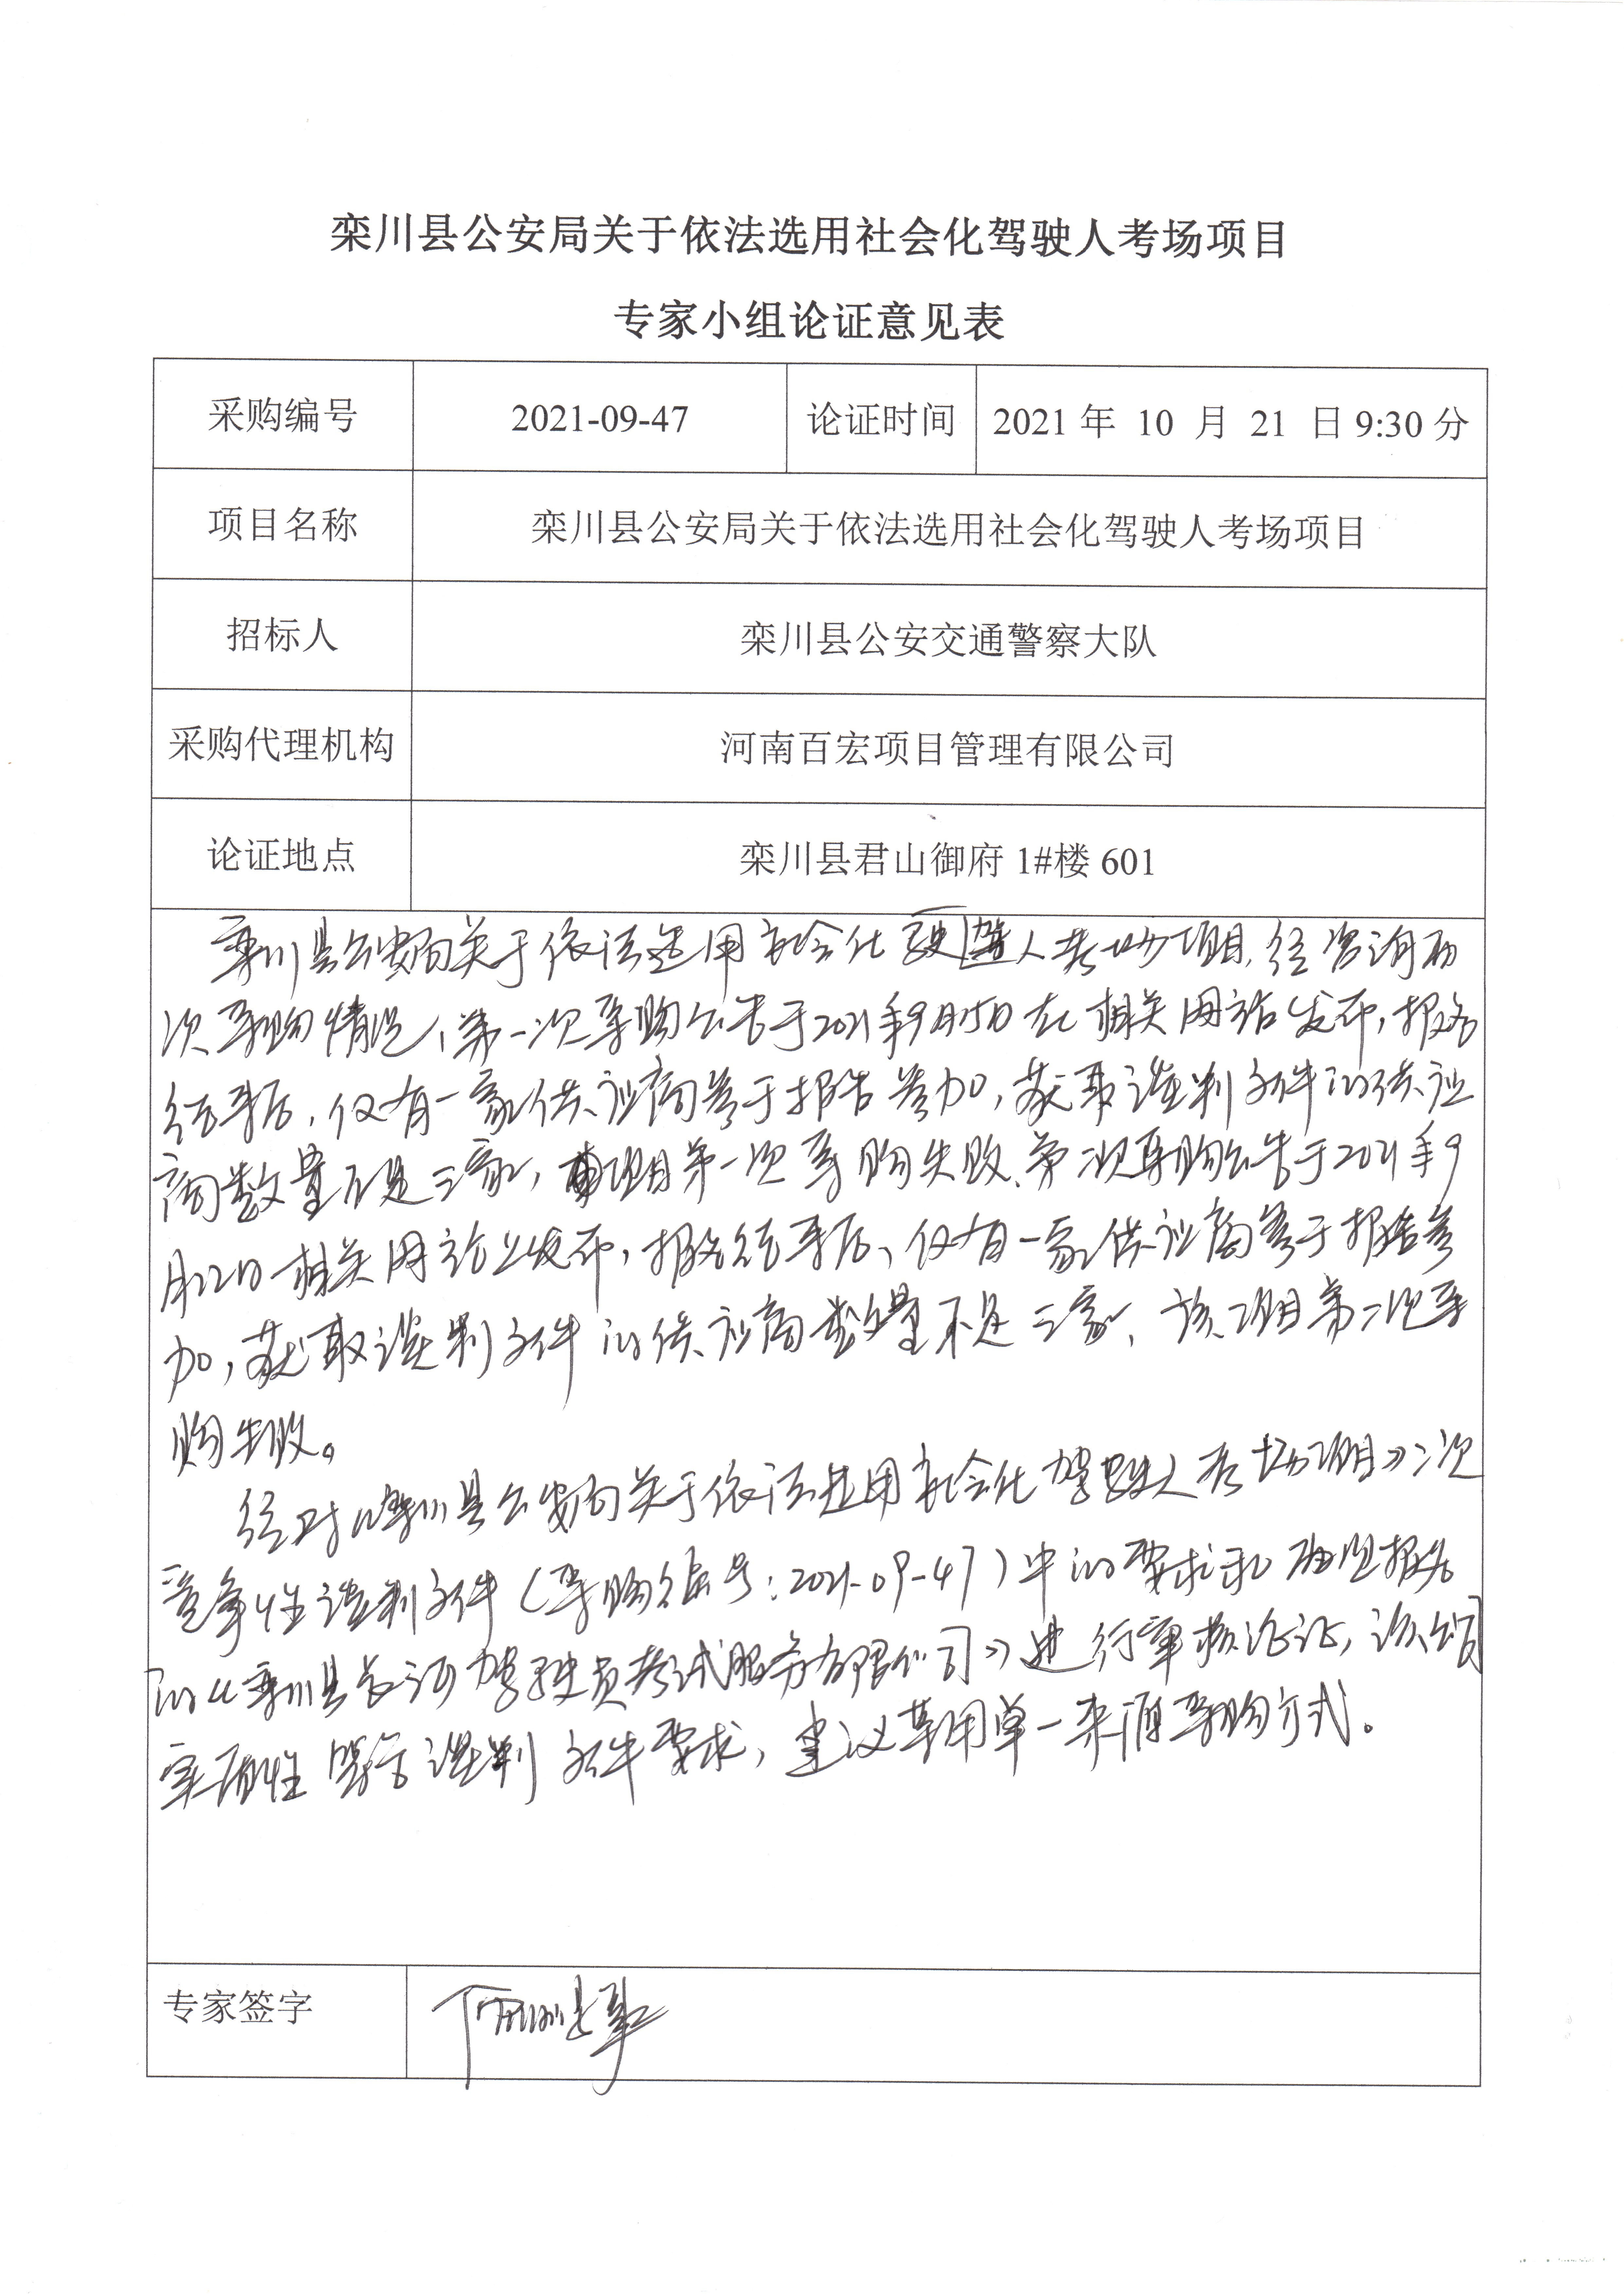 栾川县公安局关于依法选用社会化驾驶人考场项目
专家小组论证意见表
采购编号 2021-09-47 论证时间 2021 年 10 月 21 日 9:30 分
项目名称 栾川县公安局关于依法选用社会化驾驶人考场项目
招标人 栾川县公安交通警察大队
采购代理机构 河南百宏项目管理有限公司
论证地点 栾川县君山御府 1#楼 601
栾川县公安局关于依法选用社会化驾驶人考场项目,经咨询两
次采购情况,第一次采购公告于2021年9月15日在相关网站发布,报名
结束后,仅有一家供应商参于报告参加,获取谈判文件的供应
商数量不足三家,项目第一次采购失败、第二次采购公告于2021年9
月22日相关网站上发布,报名结束后、仅有一家供应商参于报告参
加,获取谈判文件的供应商数量不足三家、该项目第二次采
购失败。
经对《栾川县公安局关于依法选用社会化驾驶人考场项目》二次
竞争性谈判文件(采购编号:2021-09-47)中的要求和 报名
的《栾川县长河驾驶员考试服务有限公司》进行审核论证,该公司
实质性响应谈判文件要求,建议采用单一来源采购方式。
专家签字